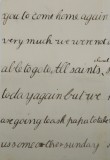 you to come home again
very much we were not
about
able to go to All saints, s
to day again but we
are going to ask papa to take
us some other sunday